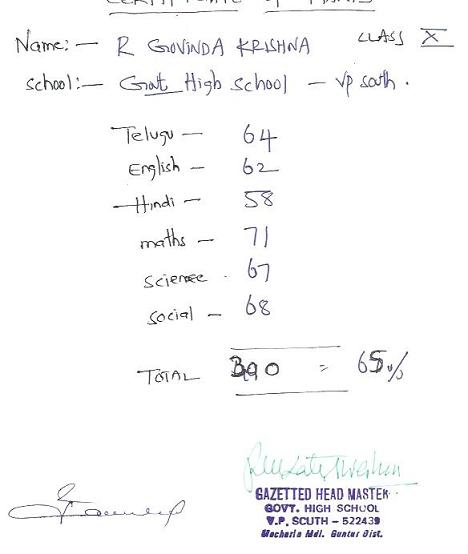 CERTIFICATE of MARKS
Name:- R GOVINDA KRISHNA CLASS X
School:- Govt High School - VP south.
Telugu - 64
English - 62
Hindi - 58
maths - 71
science - 67
social - 68
TOTAL 390 = 65%
GAZETTED HEAD MASTER
GOVT. HIGH SCHOOL
V.P. SOUTH - 522439
Macherla Mdl. Guntur Dist.